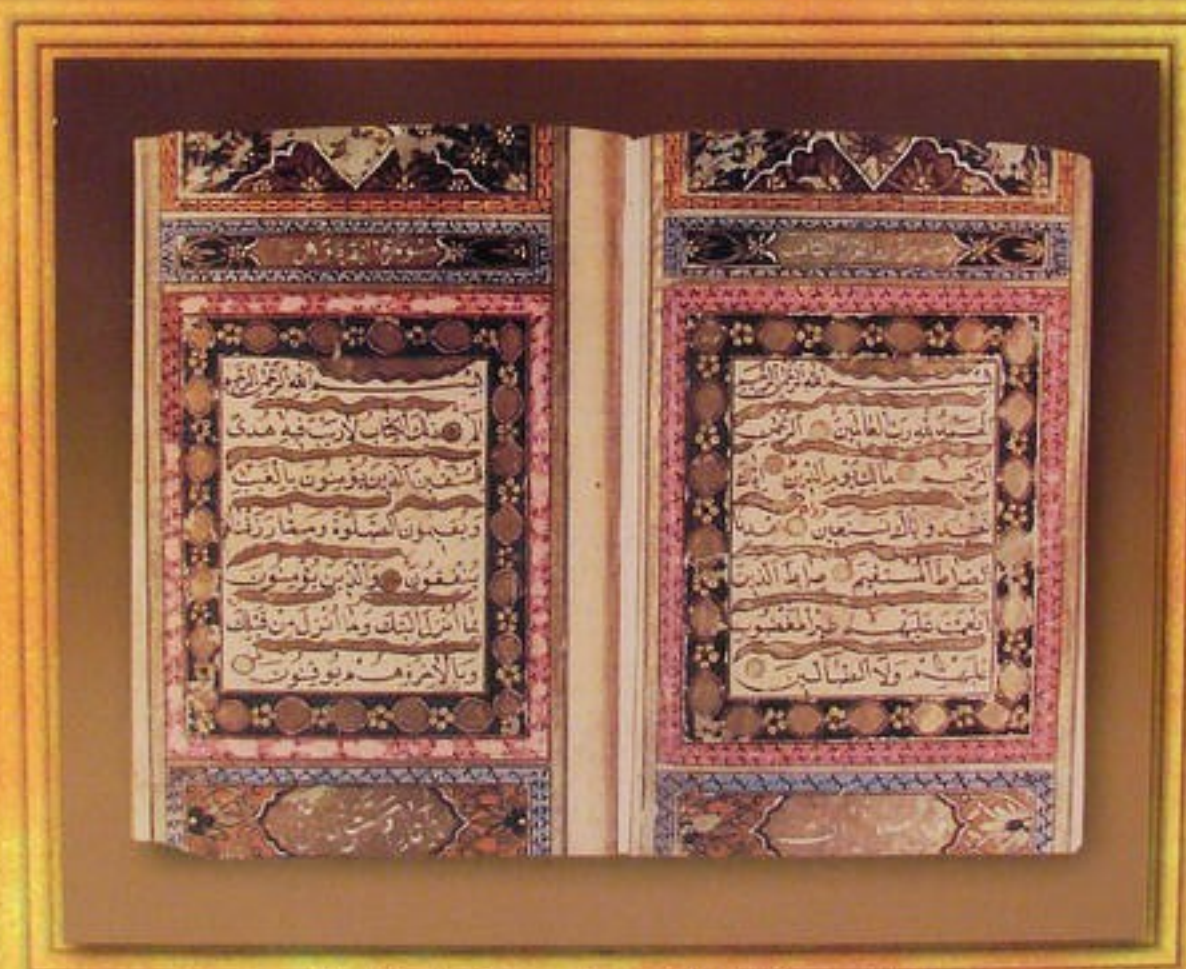 بسم الله الرحمن الرحيم
الحمد لله رب العالمين الرحمن
الرحيم مالك يوم الدين إياك
نعبد وإياك نستعين اهدنا
الصراط المستقيم صراط الذين
أنعمت عليهم غير المغضوب
عليهم ولا الضالين
سورة البقرة
بسم الله الرحمن الرحيم
الم ذلك الكتاب لا ريب فيه هدى
للمتقين الذين يؤمنون بالغيب
ويقيمون الصلوة ومما رزقناهم
ينفقون والذين يؤمنون
بما أنزل إليك وما أنزل من قبلك
وبالآخرة هم يوقنون